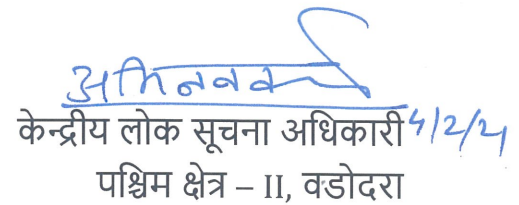 केन्द्रीय लोक सूचना अधिकारी 4/2/21
पश्चिम क्षेत्र – II, वडोदरा